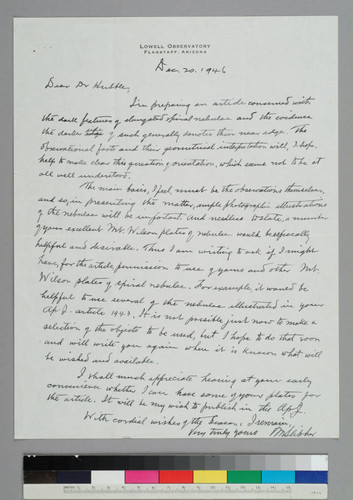 LOWELL OBSERVATORY
FLAGSTAFF, ARIZONA
Dec. 20. 1946
Dear Dr Hubble,
I'm preparing an article concerned with
the dark features of elongated spiral nebulae and the evidence
the darker edge of such generally denotes their near edge. The
observational facts and their geometrical interpretation will, I hope,
help to make clear this question of orientation, which seems not to be at
all well understood.
The main basis, I feel, must be the observations themselves,
and so, in presenting the matter, ample photographic illustrations
of the nebulae will be important. And needless to state, a number
of your excellent Mt. Wilson plates of nebulae would be especially
helpful and desirable. Thus I am writing to ask if I might
have, for the article, permission to use of yours and other Mt.
Wilson plates of spiral nebulae. For example, it would be
helpful to use several of the nebulae illustrated in your
Ap J. article 1943. It is not possible just now to make a
selection of the objects to be used, but I hope to do that soon
and will write you again when it is known what will
be wished and available.
I shall much appreciate hearing at your early
convenience whether I can have some of your plates for
the article. It will be my wish to publish in the Ap J.
With cordial wishes of the Season, I remain,
Very truly yours V M Slipher